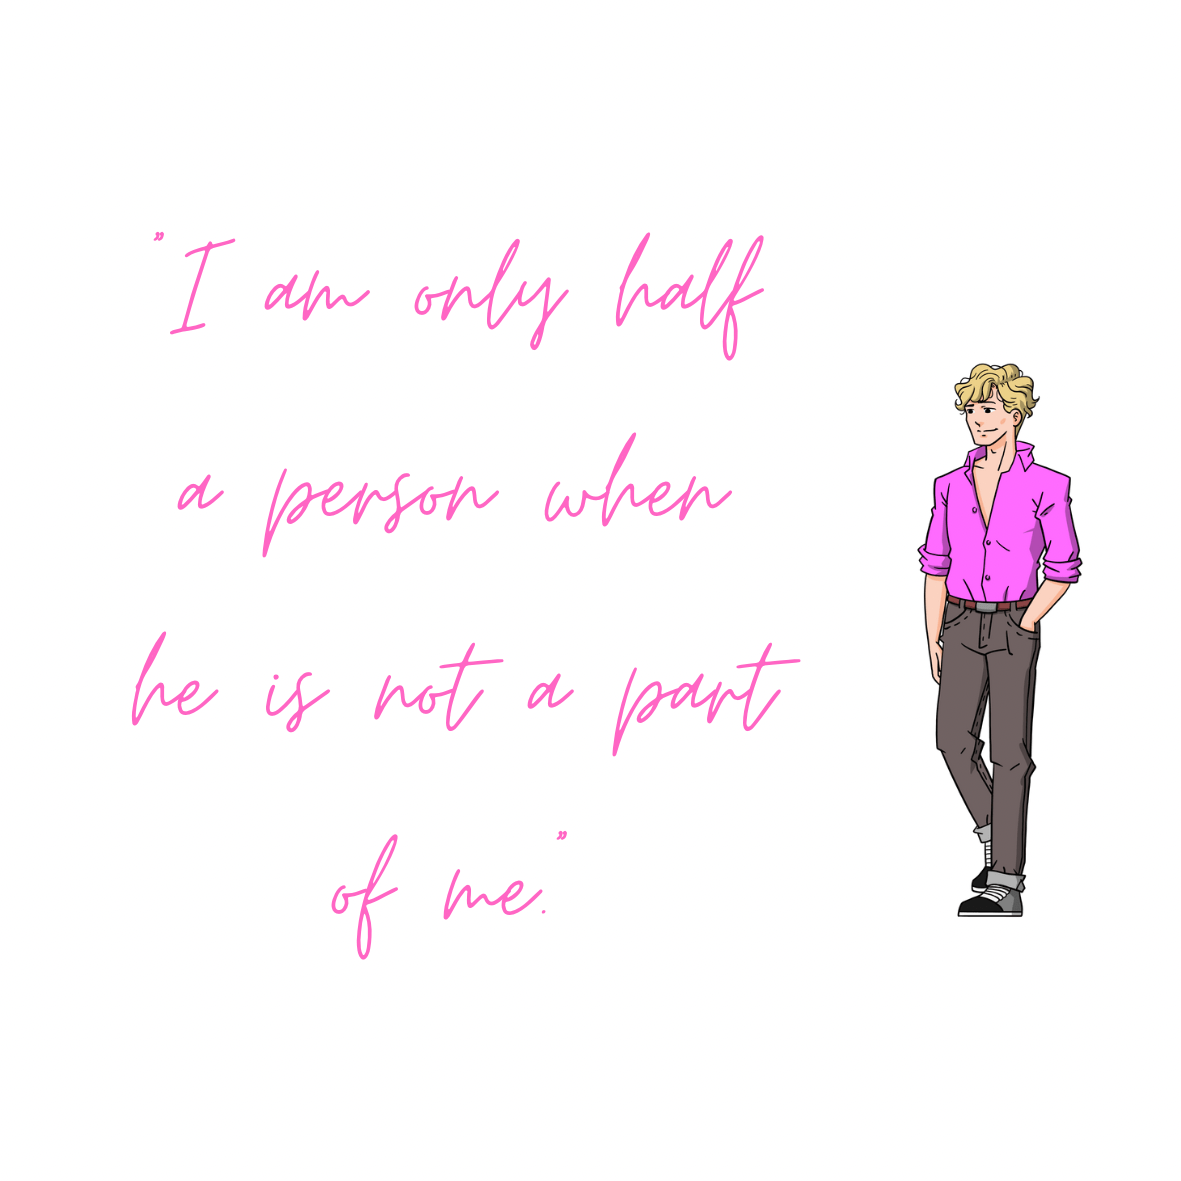 ”I am only half
a person when
he is not a part
of me.”